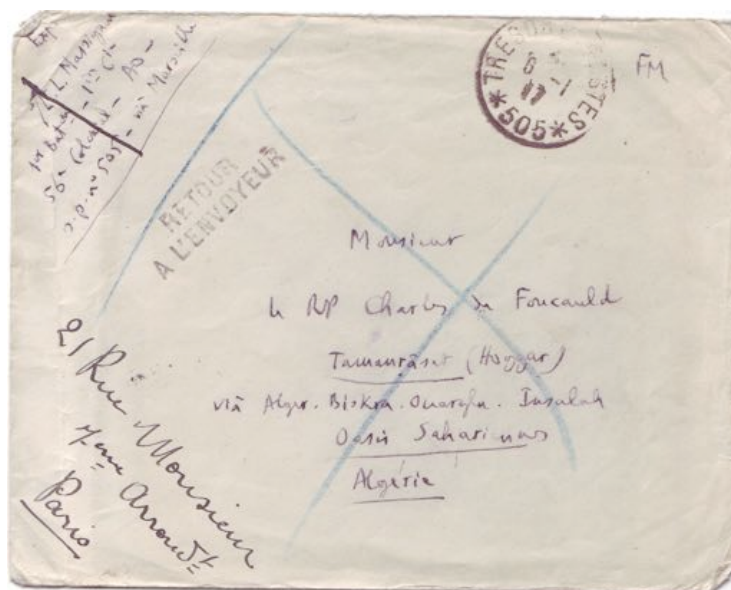 Exp
L. Massignon
1er Baton - 1re Cie
56e Colonial - AO -
s.p. no 505 - via Marseille
TRESOR ET POSTES
6 -1
17
*505*
FM
RETOUR
A L'ENVOYEUR
Monsieur
le RP Charles de Foucauld
Tamanrāset (Hoggar)
viâ Alger. Biskra. Ouargla. Insalah
Oasis Sahariennes
Algérie
21 Rue Monsieur
7eme Arrondt
Paris